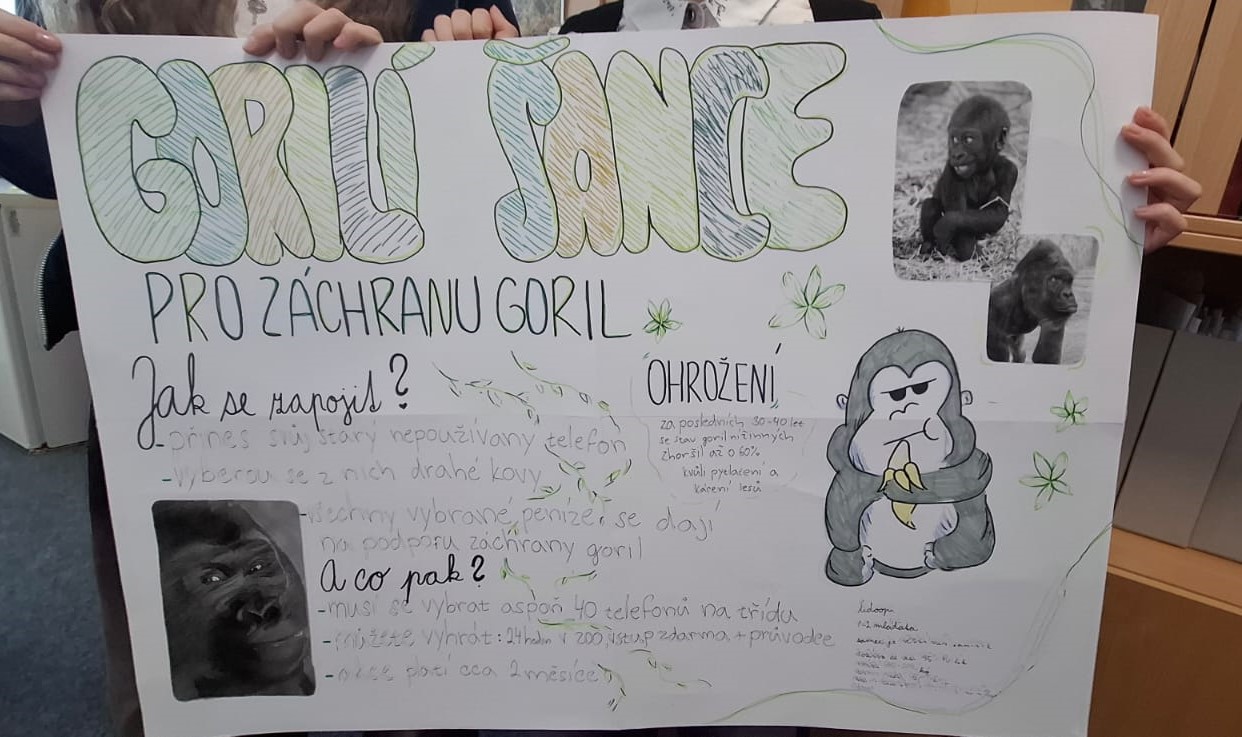 GORILÍ ŠANCE
PRO ZÁCHRANU GORIL
Jak se zapojit?
-přines svůj starý nepoužívaný telefon
-vyberou se z nich drahé kovy
-všechny vybrané peníze se dají
na podporu záchrany goril
A co pak?
-musí se vybrat aspoň 40 telefonů na třídu
-můžete vyhrát: 24 hodin v ZOO, vstup zdarma + průvodce
-akce platí cca 2 měsíce
OHROŽENÍ
za posledních 30-40 let
se stav goril nížinných
zhoršil až o 60%
kvůli pytlačení a
kácení lesů
lidoopi
1-2 mláďata
samec je větší než samice